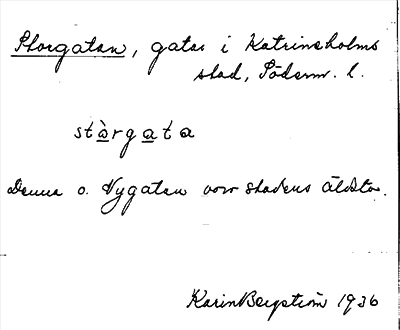 Storgatan, gatas i Katrineholms
stad, Söderm. l.
stàrgata
Denna o. Nygatan voro stadens äldsta.
Karin Bergström 1936